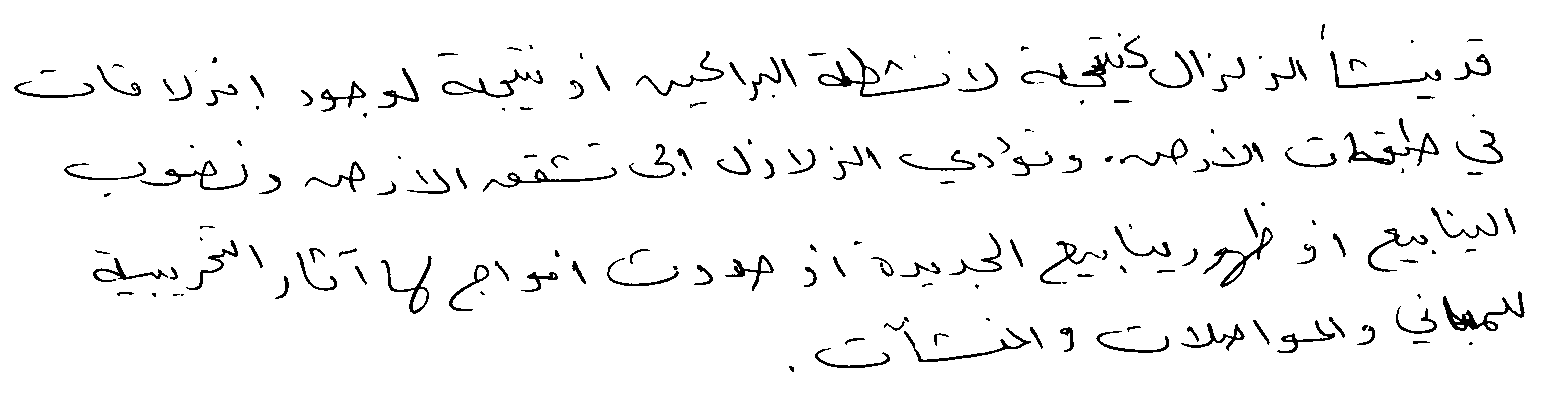 قد ينشأ الزلزال كنتيجة لانشطة البراكين او نتيجة لوجود إنزلاقات
في طبقات الارض. وتؤدي الزلازل الى تشقق الارض ونضوب
الينابيع او ظهور ينابيع الجديدة او حدوث امواج لها آثار التخريبية
للمباني والمواصلات والمنشآت.